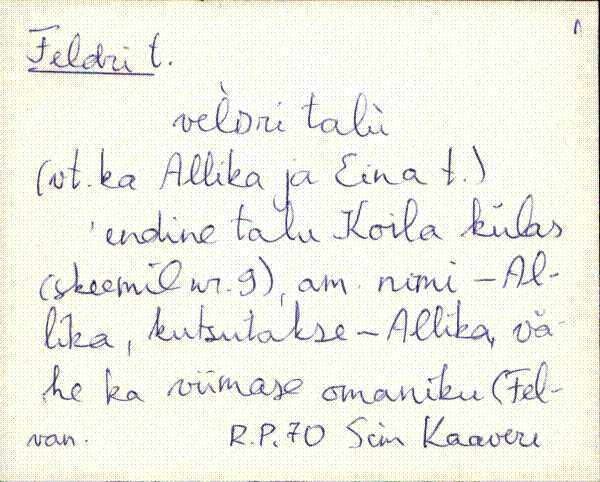 1
Feldri t.
velDri talù
(vt. ka Allika ja Eina t.)
'endine talu Koila külas
(skeemil nr. 9), am. nimi - Al-
lika, kutsutakse - Allika, vä-
he ka viimase omaniku (Fel-
van. R.P.70 Siim Kaavere